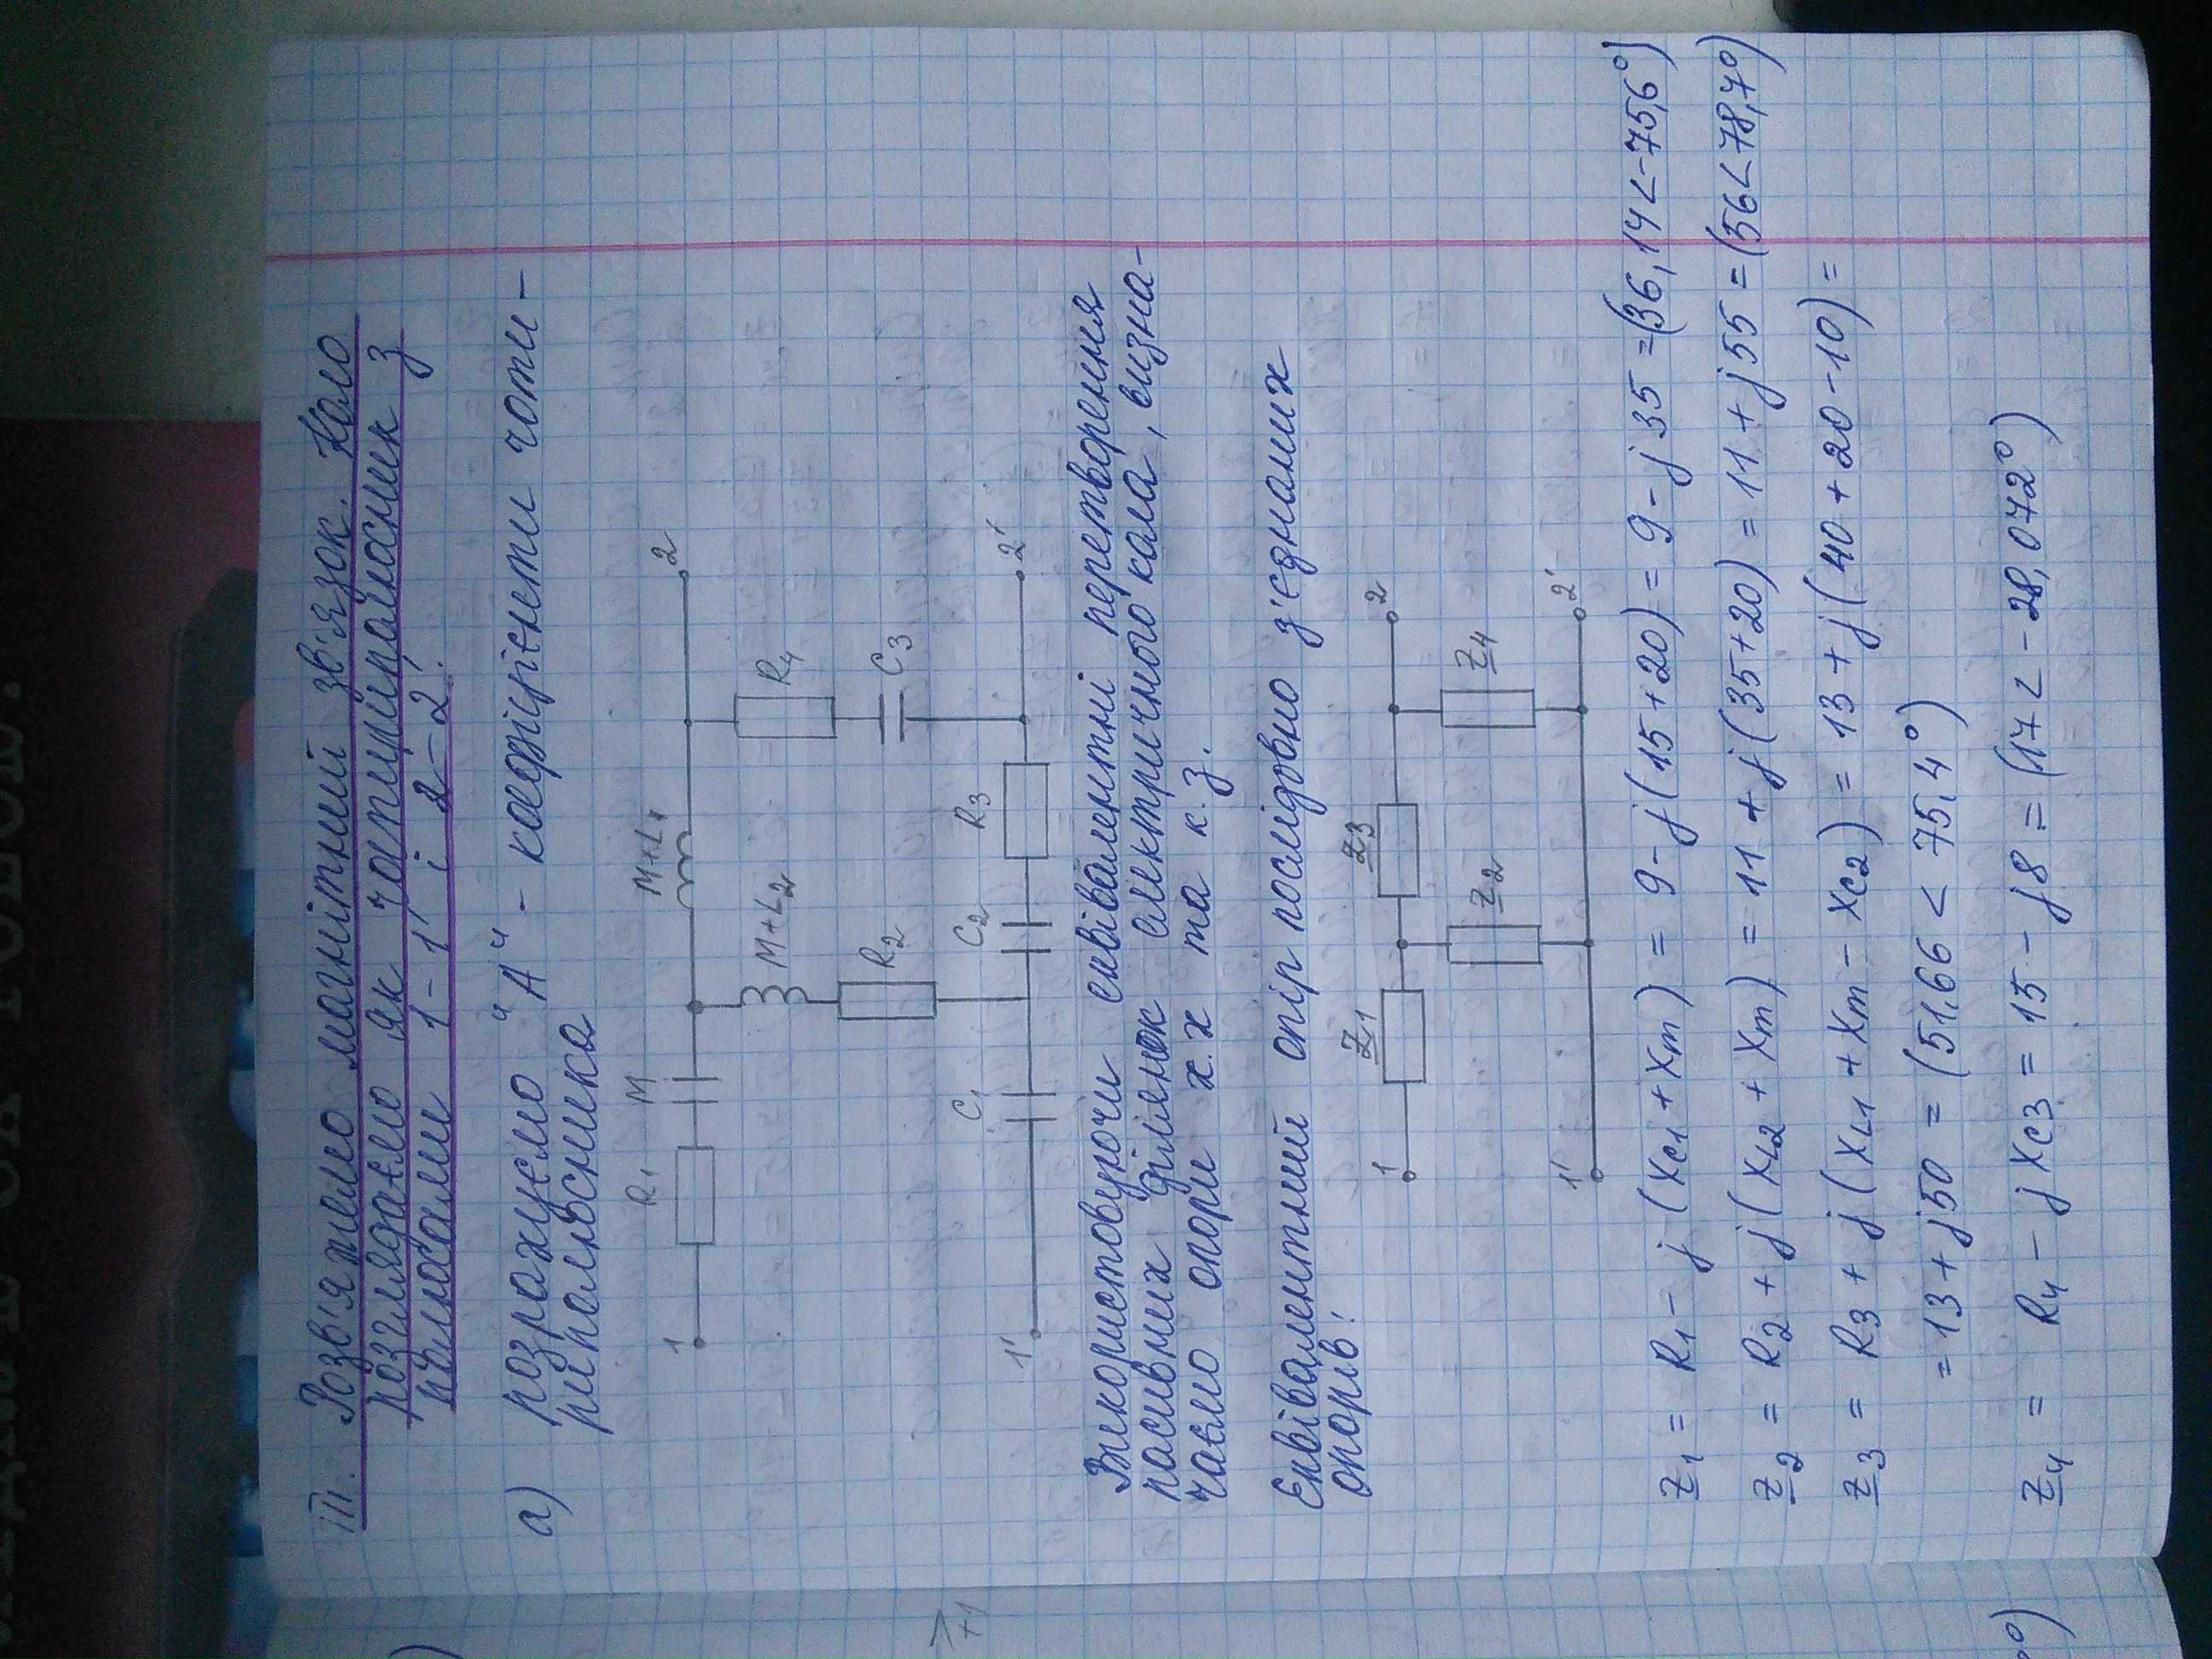 III. Розв'яжемо магнітний зв'язок. Коло
розглядаємо як чотирйполюсник з
полюсами 1-1' і 2-2'.
а) розрахуємо "А" - коефіцієнти чоти-
риполюсника
1 R1 M M+L1 2
M+L2
R2
R4
C3
1' C1 C2 R3 2'
Використовуючи еквівалентні перетворення
пасивних ділянок електричного кола, визна-
чаємо опори х.х та к.з.
Еквівалентний опір послідовно з'єднаних
опорів:
1 Z1 Z3 2
Z2 Z4
1' 2'
Z1 = R1 - j(Xc1 + Xm) = 9 - j(15+20) = 9 - j35 = (36,14<-75,6°)
Z2 = R2 + j(XL2 + Xm) = 11 + j(35+20) = 11 + j55 = (56<78,7°)
Z3 = R3 + j(XL1 + Xm - Xc2) = 13 + j(40+20-10) =
= 13 + j50 = (51,66 < 75,4°)
Z4 = R4 - jXc3 = 15 - j8 = (17 < -28,072°)